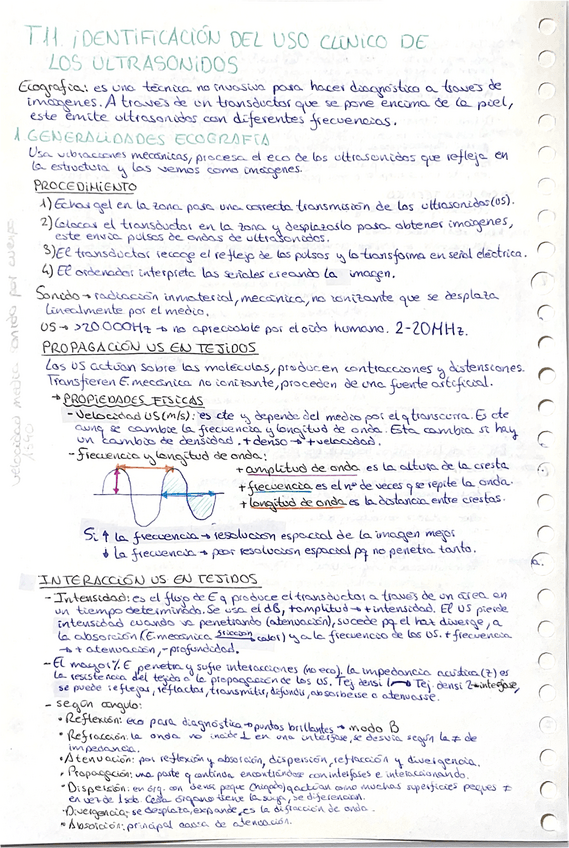 T.11. iDENTIFICACIÓN DEL USO CLINICO DE
LOS ULTRASONIDOS
Ecografia: es una tecnica no invasiva para hacer diagnóstico a traves de
imagenes. A través de un transductor que se pone encima de la piel,
este emite ultrasonidos con diferentes frecuencias.
1 GENERALIDADES ECOGRAFÍA
Usa vibraciones mecánicas, procesa el eco de los ultrasonidos que refleja en
la estructura y las vemos como imágenes.
PROCEDIMIENTO
1) Echar gel en la zona para una correcta transmisión de los ultrasonidos (US).
2) Colocar el transductor en la zona y desplazarlo para obtener imagenes,
este envia pulsos de ondas de ultrasonidos.
3) El transductor recoge el reflejo de los pulsos y lo transforma en señal electrica.
4) El ordenador interpreta las señales creando la imagen.
Sonido → radiación inmaterial, mecánica, no ionizante que se desplaza
linealmente por el medio.
US → >20000Hz → no apreciable por el oido humano. 2-20MHz.
PROPAGACIÓN US EN TEJIDOS
Los US actúan sobre las moléculas, producen contracciones y distensiones.
Transfieren E. mecánica no ionizante, proceden de una fuente artificial.
→ PROPIEDADES FÍSICAS
- Velocidad US (m/s): es cte y depende del medio por el q transcurra. Es cte
aunq se cambie la frecuencia y longitud de onda. Esta cambia si hay
un cambio de densidad. + denso → + velocidad.
velocidad media sonido por cuerpo
1540
- frecuencia y longitud de onda:
+ amplitud de onda es la altura de la cresta
+ frecuencia es el nº de veces q se repite la onda.
+ longitud de onda es la distancia entre crestas.
Si ↑ la frecuencia → resolución espacial de la imagen mejor
↓ la frecuencia → peor resolución espacial pq no penetra tanto.
INTERACCIÓN US EN TEJIDOS
- Intensidad: es el flujo de E q produce el transductor a través de un área en
un tiempo determinado. Se usa el dB, + amplitud → + intensidad. El US pierde
intensidad cuando va penetrando (atenuación), sucede pq el haz diverge, a
la absorción (E mecánica fricción calor) y a la frecuencia de los US. + frecuencia
→ + atenuación, - profundidad.
- El mayor % E penetra y sufre interacciones (no eco). la impedancia acústica (Z) es
la resistencia del tejido a la propagación de los US. Tej densi 1 → Tej densi 2 = interfase,
se puede reflejar, refractar, transmitir, difundir, absorberse o atenuarse.
- según angulo:
• Reflexión: eco para diagnóstico → puntos brillantes → modo B
• Refracción: la onda no incide ⊥ en una interfase, se desvia según la ≠ de
impedancia.
• Atenuación: por reflexión y absorción, dispersión, refracción y divergencia.
• Propagación: una parte q continua encontrandose con interfases e interaccionando.
• Dispersión: en órg. con dens peque (higado) q actúan como muchas superficies peques ≠
en vez de 1 sola. Cada órgano tiene la suya, se diferencian.
- Divergencia: se desplaza, expande, es la difracción de onda.
• Absorción: principal causa de atenuación.